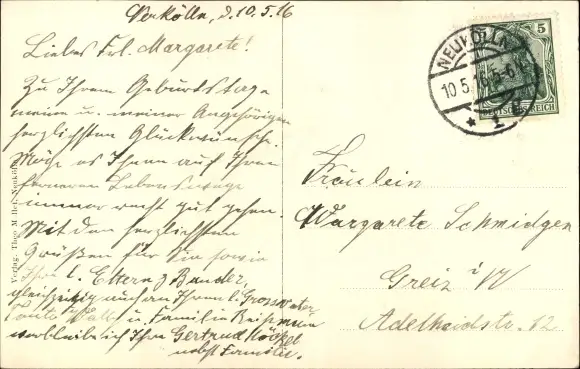 Neukölln, d. 10.5.16
Liebes Frl. Margarete!
Zu Ihrem Geburtstage
meine u. meiner Angehörigen
herzlichsten Glückwünsche.
Möge es Ihnen auf Ihrem
ferneren Lebenswege
immer recht gut gehen.
Mit den herzlichsten
Grüßen für Sie sowie
Ihre l. Eltern u. Bruder,
gleichzeitig auch an Ihren l. Grossvater
Tante u. Familie
verbleibe ich Ihre Gertrud
nebst Familie.
Verlag: Theo M.
NEUKÖLLN
10.5.16.5-6N
* 1
5
DEUTSCHES REICH
Fräulein
Margarete Schmidgen
Greiz i/V
Adelheidstr. 12